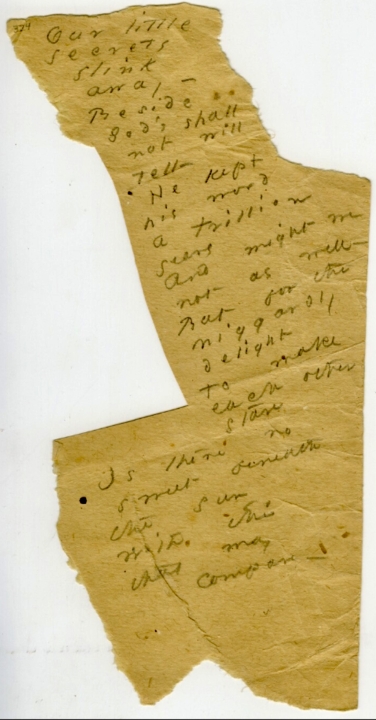 374
Our little
secrets
slink
away –
Beside
God's shall
not will
tell –
He kept
his word
a trillion
years
And might we
not as well –
But for the
niggardly
delight
to make
each other
stare
Is there no
sweet beneath
the sun
with this
that may
compare –